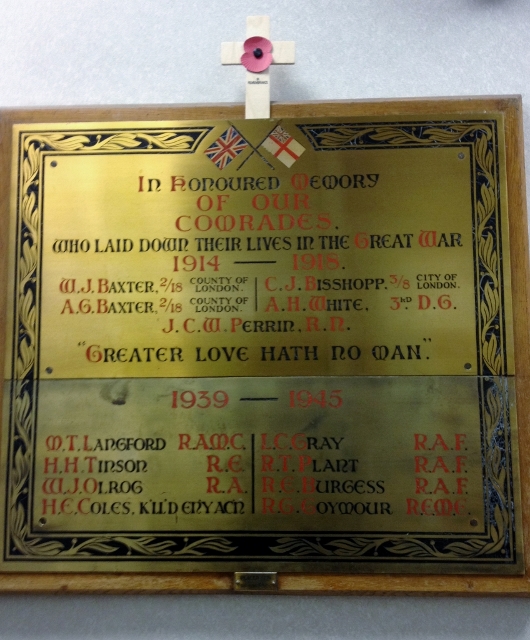 In Honoured Memory
OF OUR
COMRADES.
WHO LAID DOWN THEIR LIVES IN THE GREAT WAR
1914 — 1918.
W.J. BAXTER, 2/18 COUNTY OF LONDON. C.J. BISSHOPP, 3/8 CITY OF LONDON.
A.G. BAXTER, 2/18 COUNTY OF LONDON. A.H. WHITE, 3RD D.G.
J.C.W. PERRIN, R.N.
"GREATER LOVE HATH NO MAN."
1939 — 1945
M.T. LANGFORD R.A.M.C. I.C. GRAY R.A.F.
H.H. TINSON R.E. R.T. PLANT R.A.F.
W.J. OLROG R.A. R.E. BURGESS R.A.F.
H.E. COLES, K'LL'D ENY ACN R.G. EOYMOUR R.E.M.E.